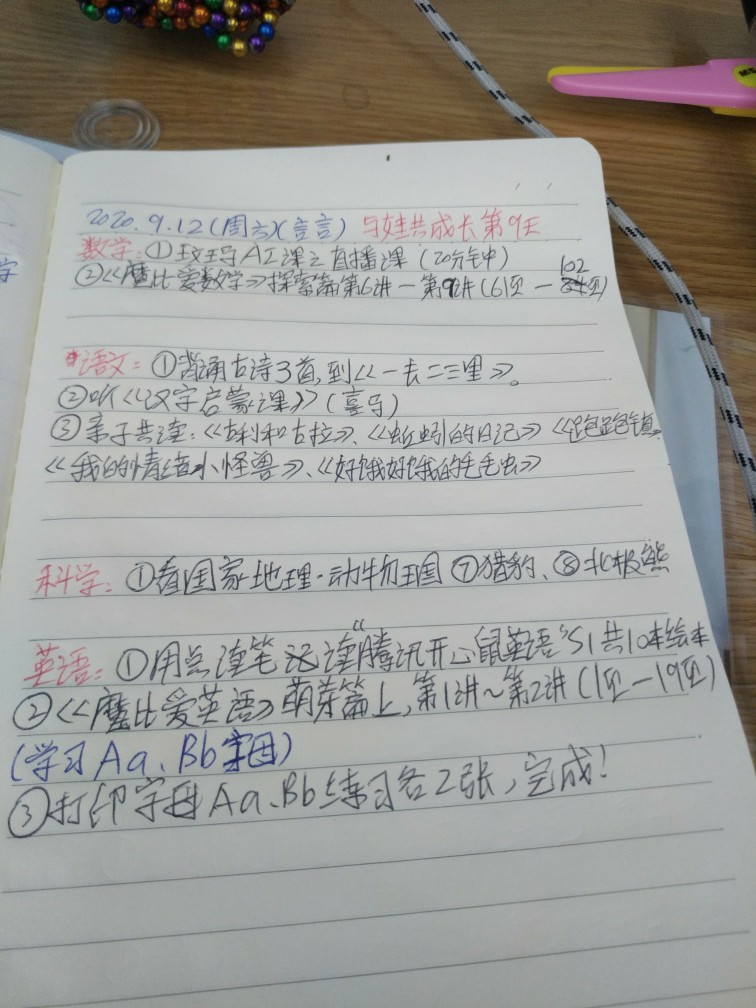 2020.9.12(周六)(言言) 与娃共成长第9天
数学:①玟玛AI课之直播课(20分钟)
②《摩比爱数学》探索篇第6讲—第9讲(61页—102页)
语文:①背诵古诗3首,到《一去二三里》。
②听《汉字启蒙课》(喜马)
③亲子共读:《古利和古拉》、《蚯蚓的日记》《跑跑镇》
《我的情绪小怪兽》、《好饿好饿的毛毛虫》
科学:①看国家地理·动物王国⑦猎豹、⑧北极熊
英语:①用点读笔 读"腾讯开心鼠英语"S1共10本绘本
②《摩比爱英语》萌芽篇上,第1讲~第2讲(1页—19页)
(学习Aa、Bb字母)
③打印字母Aa、Bb练习各2张,完成!